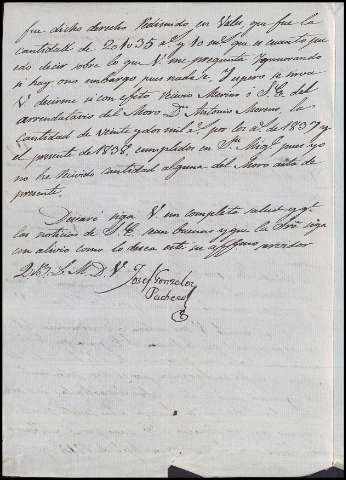 fue dicho derecho Redimido en Vales, que fue la
cantidad de 24035 rs y 10 ms que es cuanto pu
edo decir sobre lo que V. me pregunta Ignorando
si hay ono embargo pues nada se. Y espero se sirva
V decirme si con efeto Recivio Merino ó S. E. del
arrendatario del Moro Dn Antonio Moreno la
cantidad de veinte y dos mil rs por los as de 1837 y
el presente de 1838 cumplidos en Sn Migl pues yo
no he Recivido cantidad alguna del Moro asta de
presente.
Desearé siga V en completa salud y qe
las noticias de S. E. sean buenas y que la siga
con alivio como lo desea este su affmo servidor
Q. B. S. M. D. V.
Josef Gonzalez
Pacheco